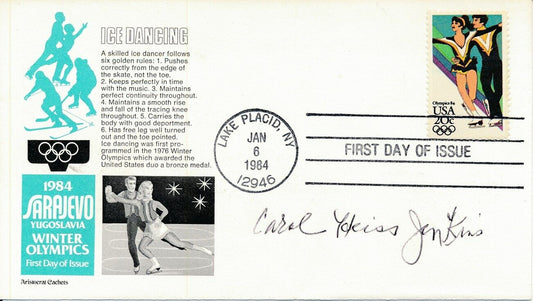 ICE DANCING
A skilled ice dancer follows
six golden rules: 1. Pushes
correctly from the edge of
the skate, not the toe.
2. Keeps perfectly in time
with the music. 3. Maintains
perfect continuity throughout.
4. Maintains a smooth rise
and fall of the tracing knee
throughout. 5. Carries the
body with good deportment.
6. Has free leg well turned
out and the toe pointed.
Ice dancing was first pro-
grammed in the 1976 Winter
Olympics which awarded the
United States duo a bronze medal.
1984
SARAJEVO
YUGOSLAVIA
WINTER
OLYMPICS
First Day of Issue
Aristocrat Cachets
LAKE PLACID, NY
JAN
6
1984
12946
FIRST DAY OF ISSUE
Olympics 84
USA
20c
Carol Heiss Jenkins